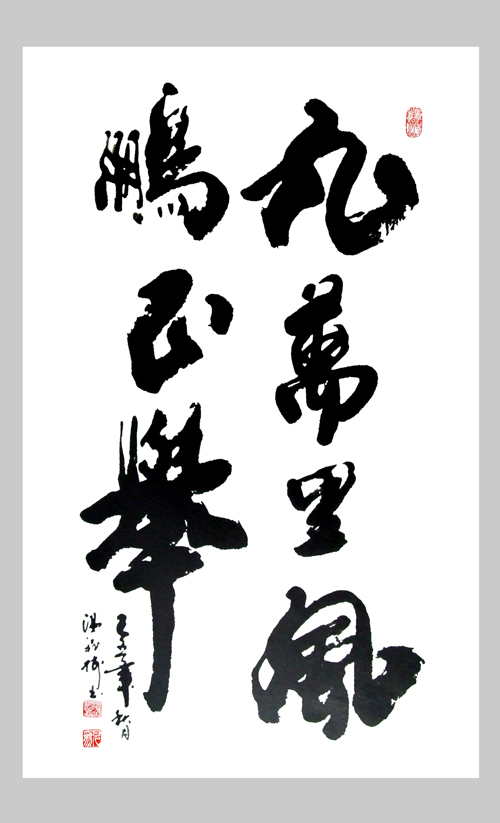 九萬里風
鵬正舉
年秋月